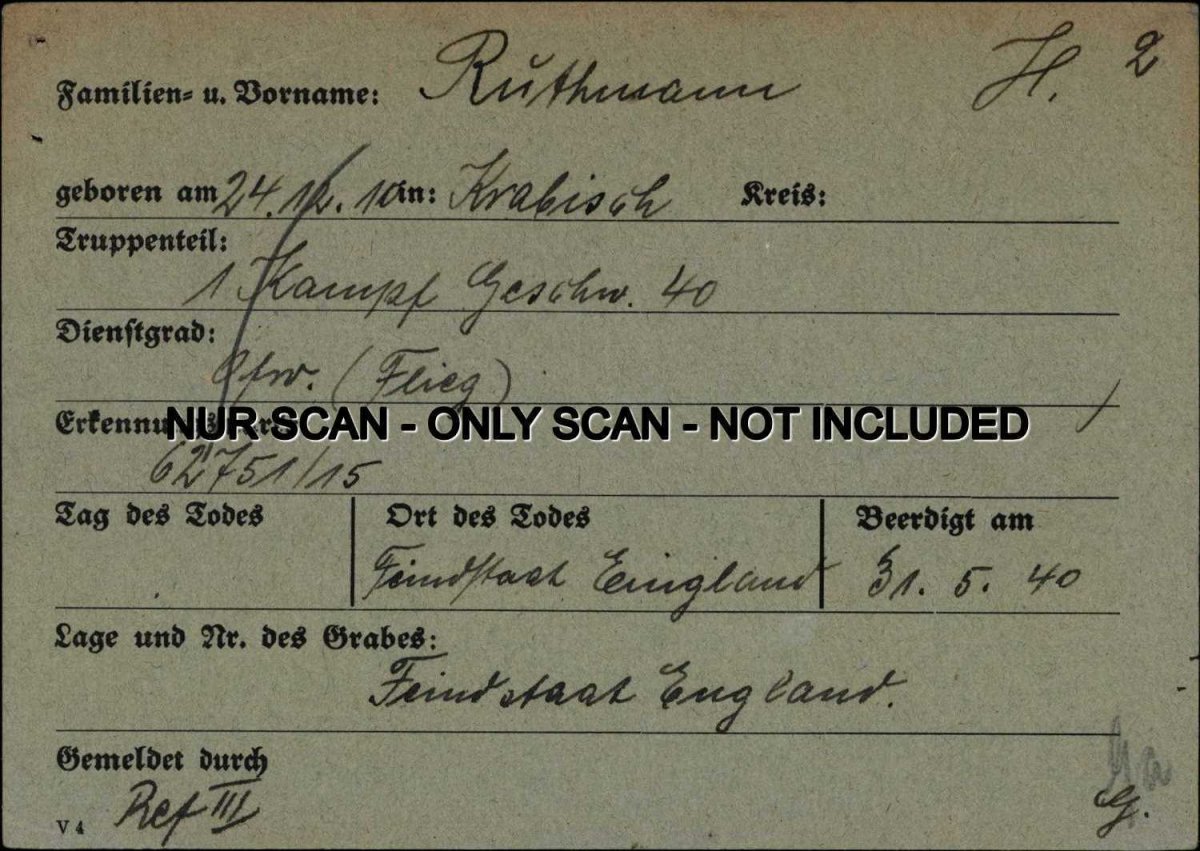 Familien- u. Vorname: Ruthmann H. 2
geboren am 24.12.10 in: Krabisch Kreis:
Truppenteil:
1 Kampf Geschw. 40
Dienstgrad:
Ofw. (Flieg)
NUR SCAN - ONLY SCAN - NOT INCLUDED
62751/15
Tag des Todes Ort des Todes Beerdigt am
Feindstaat England 31. 5. 40
Lage und Nr. des Grabes:
Feindstaat England.
Gemeldet durch
Ref III
V 4 G.